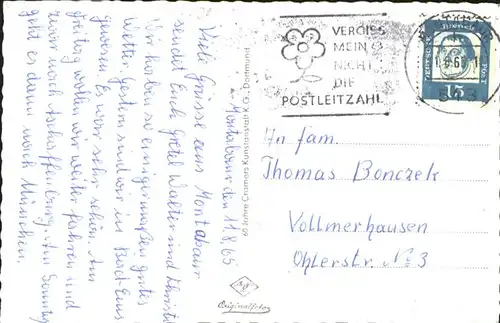 Montabaur den 11.8.65
Viele Grüsse aus Montabaur
sendet Euch Gretel Walter und
Wir haben so einigermaßen gutes
Wetter. Gestern sind wir in Bad-Ems
gewesen. Es war sehr schön. Am
Freitag wollen wir weiter fahren und
zwar nach Aschaffenburg. Am Sonntag
geht es dann nach München.
60 Jahre Cramers Kunstanstalt K.G., Dortmund
Originalfoto
VERGISS
MEIN
NICHT
DIE
POSTLEITZAHL
DEUTSCHE
POST
15
543
An Fam.
Thomas Bonczek
Vollmerhausen
Ohlerstr. No 3